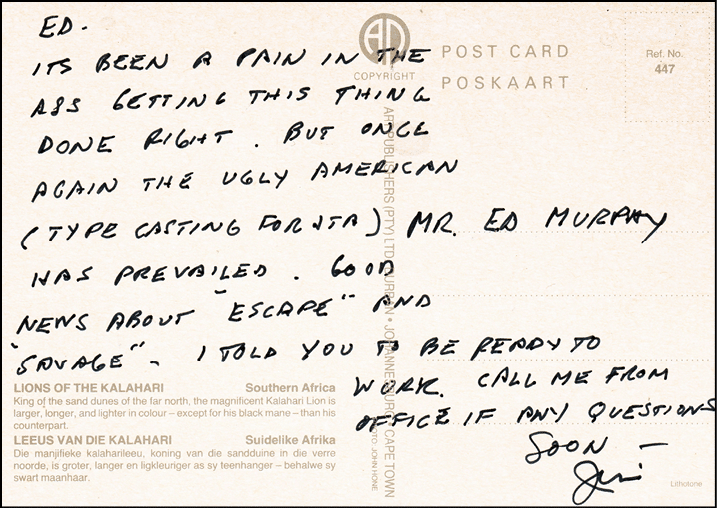 ED.
ITS BEEN A PAIN IN THE
ASS GETTING THIS THING
DONE RIGHT. BUT ONCE
AGAIN THE UGLY AMERICAN
(TYPE CASTING FOR JTA) MR. ED MURPHY
HAS PREVAILED. GOOD
NEWS ABOUT "ESCAPE" AND
"SAVAGE" - I TOLD YOU TO BE READY TO
WORK. CALL ME FROM
OFFICE IF ANY QUESTIONS
SOON —
Jim
COPYRIGHT
POST CARD
POSKAART
Ref. No.
447
ART PUBLISHERS (PTY) LTD DURBAN • JOHANNESBURG CAPE TOWN
PHOTO JOHN HONE
LIONS OF THE KALAHARI Southern Africa
King of the sand dunes of the far north, the magnificent Kalahari Lion is
larger, longer, and lighter in colour – except for his black mane – than his
counterpart.
LEEUS VAN DIE KALAHARI Suidelike Afrika
Die manjifieke kalaharileeu, koning van die sandduine in die verre
noorde, is groter, langer en ligkleuriger as sy teenhanger – behalwe sy
swart maanhaar.
Lithotone